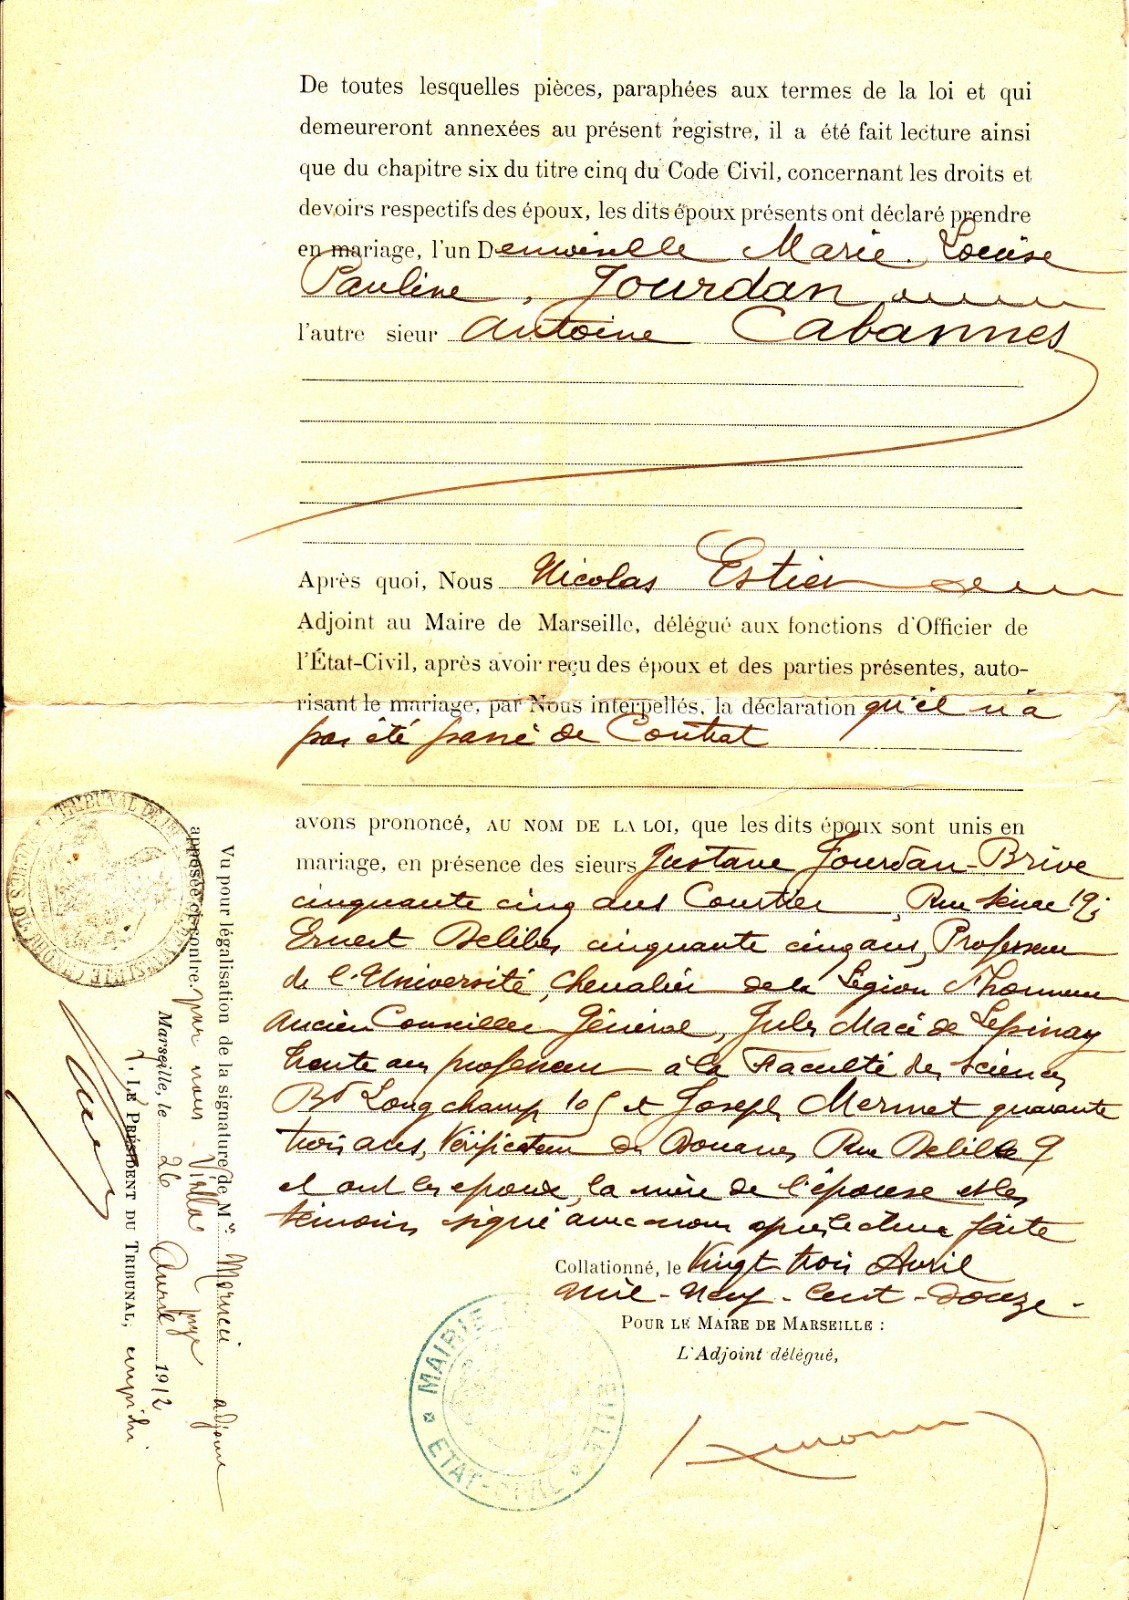 De toutes lesquelles pièces, paraphées aux termes de la loi et qui
demeureront annexées au présent registre, il a été fait lecture ainsi
que du chapitre six du titre cinq du Code Civil, concernant les droits et
devoirs respectifs des époux, les dits époux présents ont déclaré prendre
en mariage, l'un Demoiselle Marie Louise
Pauline, Jourdan
l'autre sieur Antoine Cabannes
Après quoi, Nous Nicolas Estier
Adjoint au Maire de Marseille, délégué aux fonctions d'Officier de
l'État-Civil, après avoir reçu des époux et des parties présentes, auto-
risant le mariage, par Nous interpellés, la déclaration qu'il n'a
pas été passé de Contrat
avons prononcé, AU NOM DE LA LOI, que les dits époux sont unis en
mariage, en présence des sieurs Gustave Jourdan-Brive
cinquante cinq ans Courtier, Rue Sénac 19;
Ernest Delibes cinquante cinq ans, Professeur
de l'Université, Chevalier de la Légion d'honneur
Ancien Conseiller Général, Jules Macé de Lépinay
trente ans professeur à la Faculté des Sciences
Bd Longchamp 105 et Joseph Mermet quarante
trois ans, Vérificateur des Douanes Rue Delille 9
et ont les époux, la mère de l'épouse et les
témoins signé avec nous après lecture faite
Collationné, le Vingt trois Avril
Mil-Neuf-Cent-Douze-
POUR LE MAIRE DE MARSEILLE :
L'Adjoint délégué,
MAIRIE
ETAT-CIVIL
Vu pour légalisation de la signature de Mr adjoint
apposée ci-contre, par nous juge
Marseille, le 26 1912
LE PRÉSIDENT DU TRIBUNAL, empêché
TRIBUNAL DE